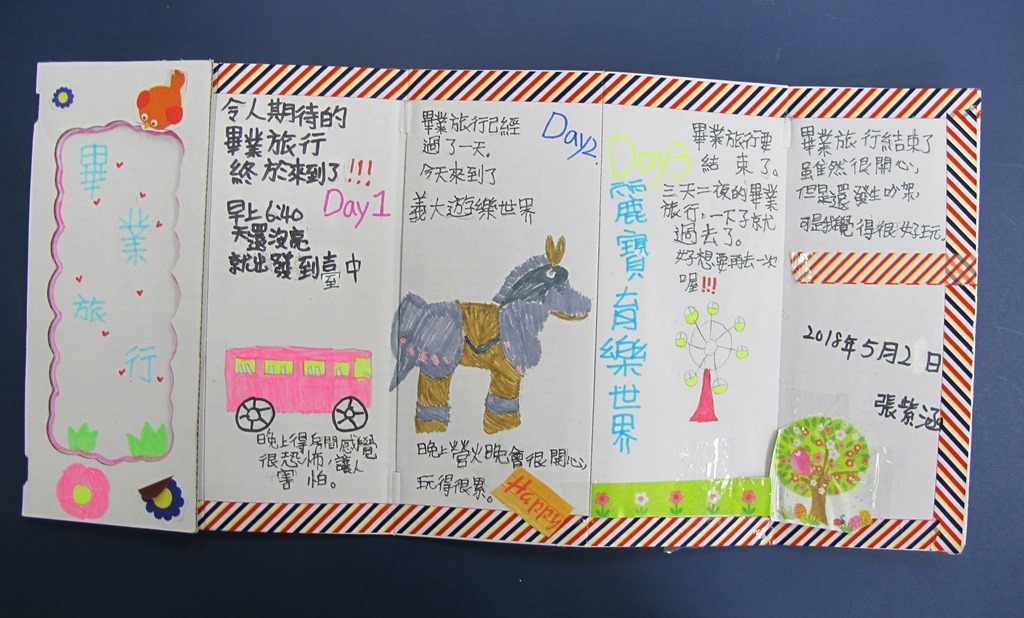 畢
業
旅
行
令人期待的
畢業旅行
終於來到了!!!
Day1
早上6:40
天還沒亮
就出發到臺中
晚上得房間感覺
很恐怖,讓人
害怕。
畢業旅行已經
過了一天。
Day2.
今天來到了
義大遊樂世界
晚上營火晚會很開心,
玩得很累。
Happy
Day3
畢業旅行要
結束了。
麗寶育樂世界
三天二夜的畢業
旅行,一下子就
過去了。
好想要再去一次
喔!!!
畢業旅行結束了
雖然很開心,
但是還發生吵架,
可是我覺得很好玩.
2018年5月2日
張紫涵